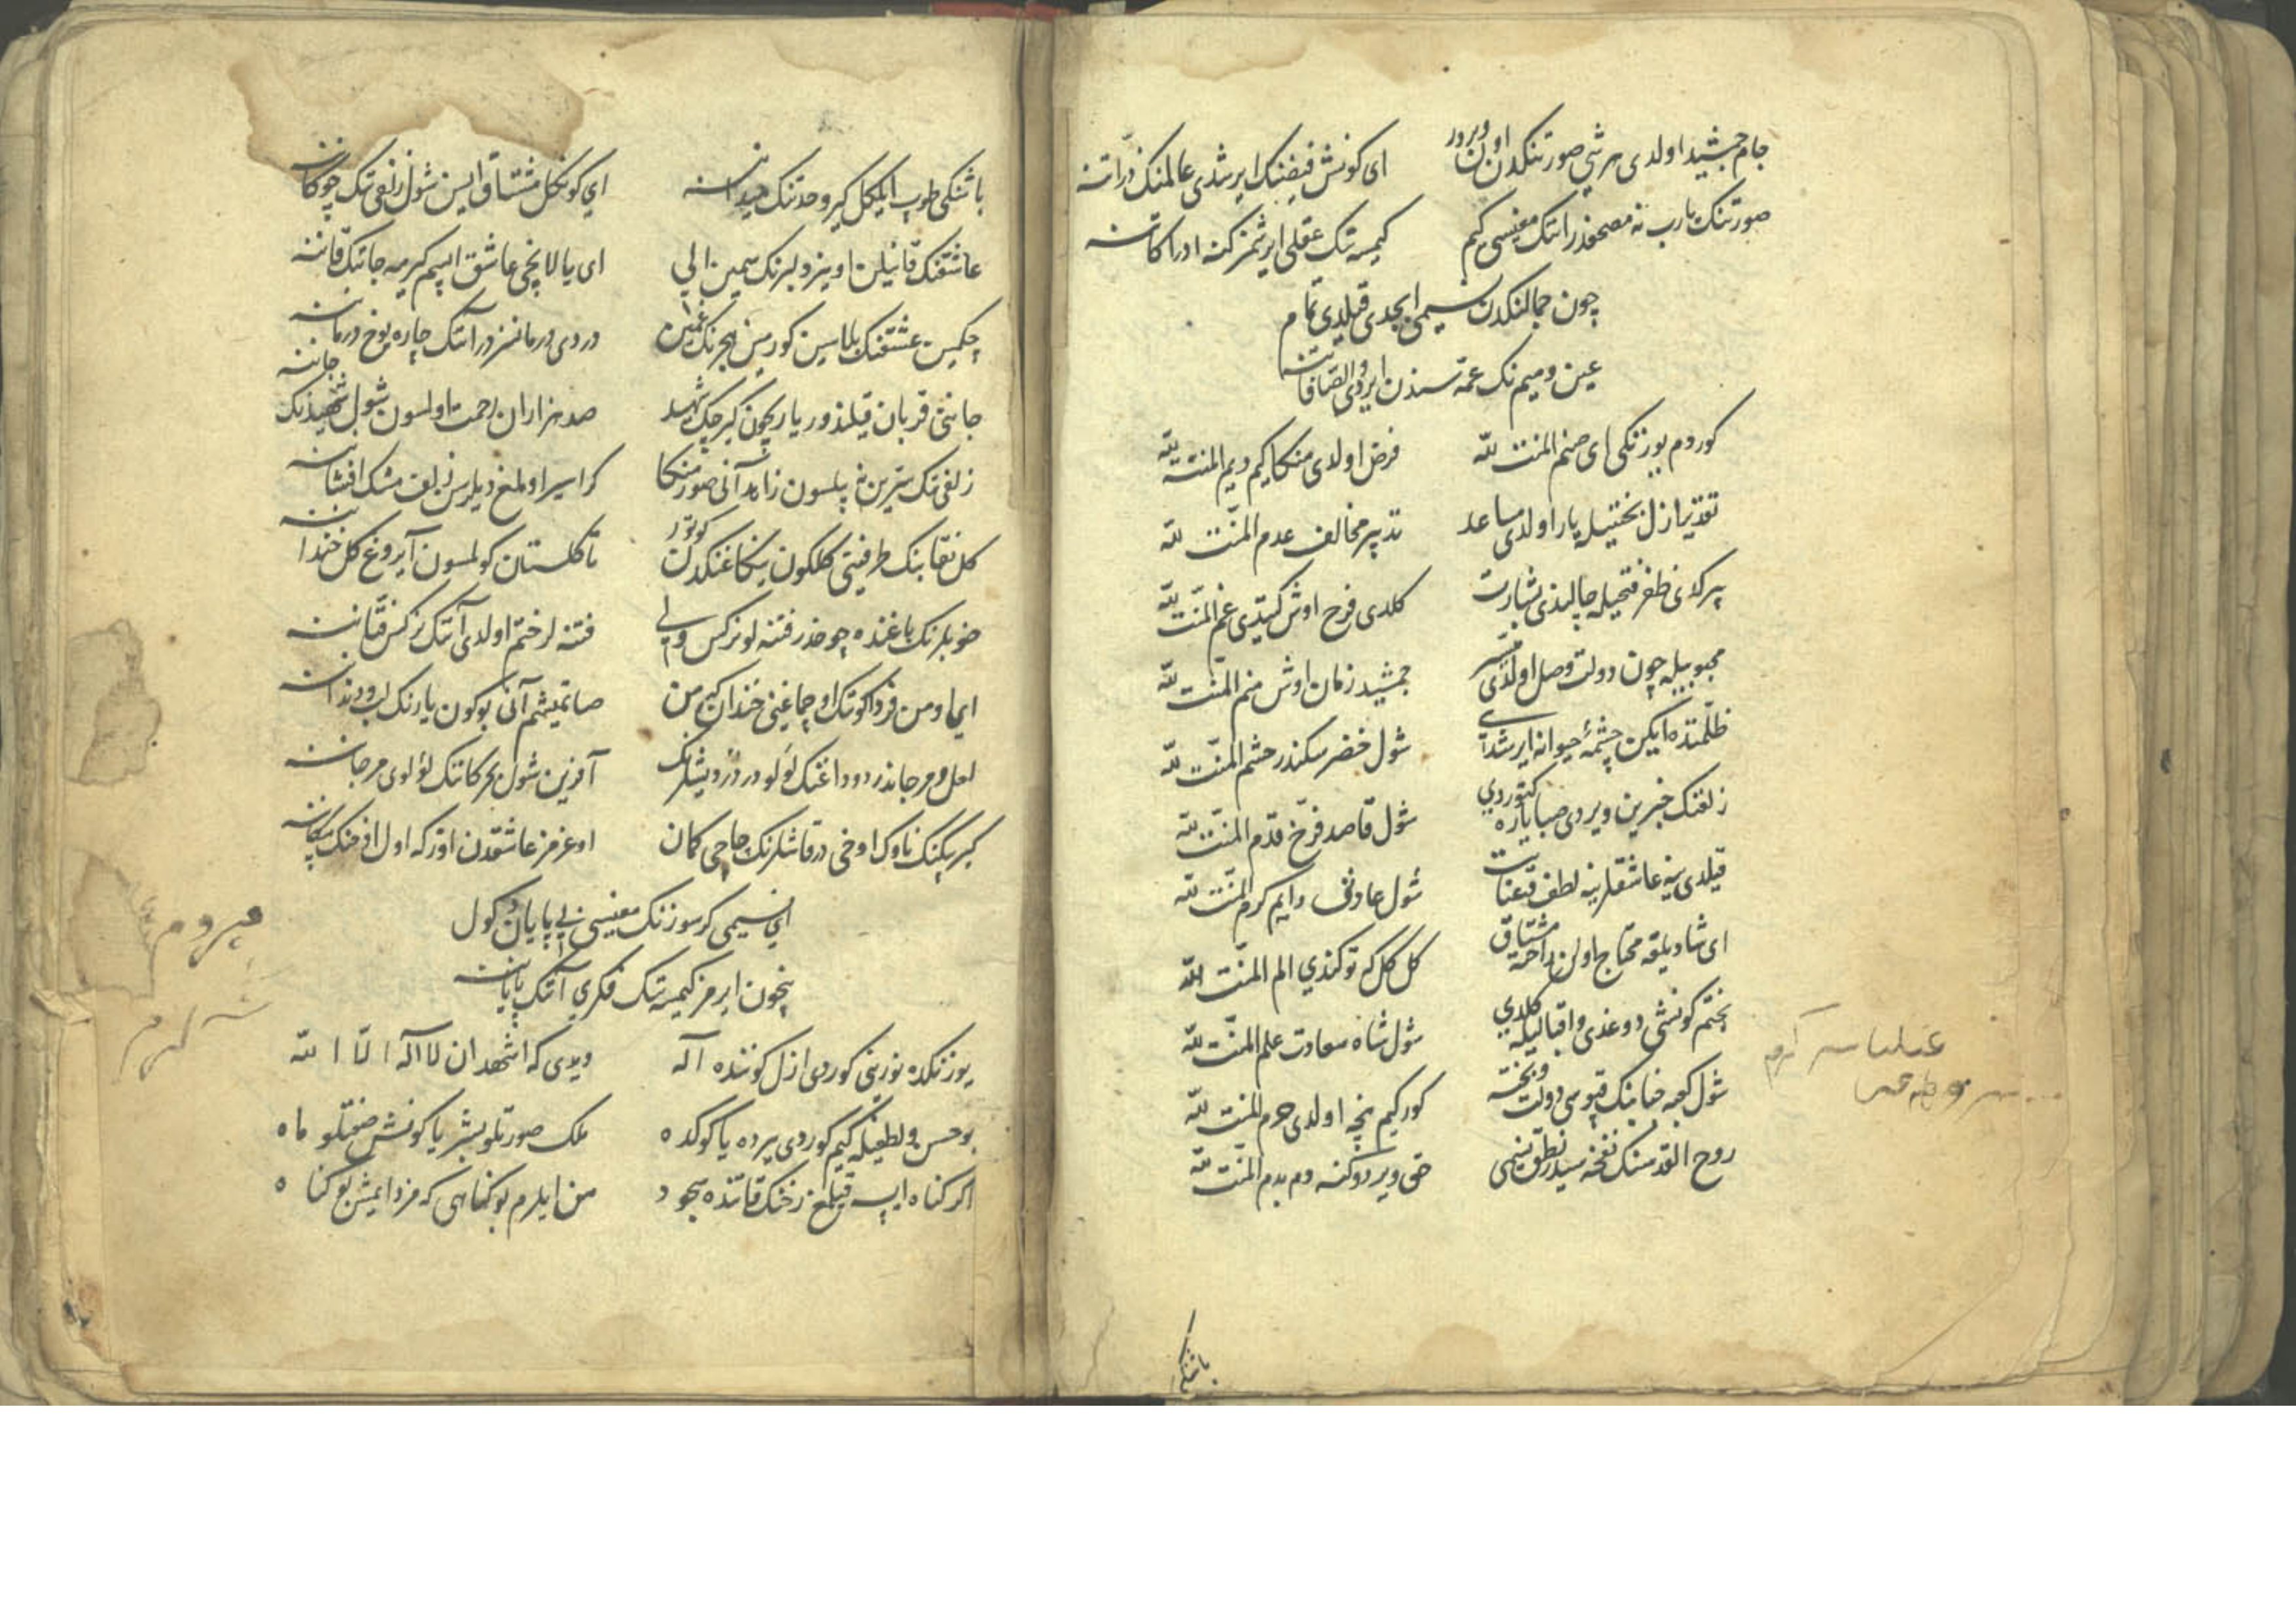 جام جمشید اولدی هر شی صورتنکدن اون ویردر ای کونش فیضنک ایرشدی عالمنک ذراتنه
صورتنک یارب نه مصحفدر انتک معنیسی کیم کیمسه نک عقلی ایرشمز کنه ادراکاتنه
چون جمالنکدن نسیمی ابجدی قیلدی تمام
عین و میم نک عمه سندن ایردی والصافاتنه
کوردم یوزنکی ای صنم المنت لله فرض اولدی منکا کیم دیم المنت لله
تقدیر ازل بختیله یار اولدی مساعد تدبیر مخالف عدم المنت لله
پیر کلدی ظفر فتحیله چالندی بشارت کلدی فرح اوش کیتدی غم المنت لله
محبوبیله چون دولت وصل اولدی میسر جمشید زمان اوش منم المنت لله
ظلمتده ایکن چشمهٔ حیوانه ایرشدی شول خضر سکندر حشم المنت لله
زلفنک خبرین ویردی صبا یاره کتوردی شول قاصد فرخ قدم المنت لله
قیلدی ینه عاشقلرینه لطف و عنایت شول عادتی دایم کرم المنت لله
ای شادیلقه محتاج اولن راحته مشتاق کل کل که توکندی الم المنت لله
بختم کونشی دوغدی و اقبالیله کلدی شول شاه سعادت علم المنت لله
شول کعبه جنابنک قپوسی دولت و بخته کور کیم نیچه اولدی حرم المنت لله
روح القدسنک نفخه سیدر نطق نسیمی حق ویردوکنه دم بدم المنت لله
باشنکی
باشنکی طوب ایلکل کیر وحدتنک میداننه ای کونکل مشتاق ایسن شول زلفی نک چوکاننه
عاشقنک قانیلن اوینر دلبرنک سیمین الی ای یالانچی عاشق ایسم کیرمه جانک قاننه
چکمین عشقنک بلاسین کورمین هجرنک غمین دردی درمانسزدر آنک چاره یوخ درماننه
جاننی قربان قیلندور یار یچون کرچک شهید صد هزاران رحمت اولسون شول شهیدنک جاننه
زلفی نک سرین نه بیلسون زاهد آنی صور منکا کر اسیر اولمغ دیلرسن زلف مشک افشاننه
کل نقابنک طرفنی کلکون ینکاغنکدن کوتور تا کلستان کولمسون آیروغ کل خنداننه
خوبلرنک باغنده چوخدر فتنه لو نرکس ولی فتنه لر ختم اولدی آنک نرکس فتاننه
ایما ومن فردا کونک اوچماغنی خندان کیم من صاتمیشم آنی بوکون یارنک لب و دنداننه
لعل و مرجاندر دوداغنک لؤلو در در دیشلرنک آفرین شول بحر کانک لؤلوی مرجاننه
کیرپکنک ناوک اوخی در قاشلرنک چاچی کمان اوغرمز عاشقدن اوزکه اول اوخنک پیکاننه
ای نسیمی کر سوزنک معنیسی بی پایان دکول
نیچون ایرمز کیمسه نک فکری آنک پایاننه
یوزنکده نورینی کوردی ازل کوننده آله دیدی که اشهد ان لا اله الا الله
بو حسن و لطفیله کیم کوردی یرده یا کوکده ملک صورتلو بشر یا کونش صفتلو ماه
اکر کناه ایسه قیلمغ رخنک قاتنده سجود من ایلرم بو کناهی که مزد ایمش بو کناه